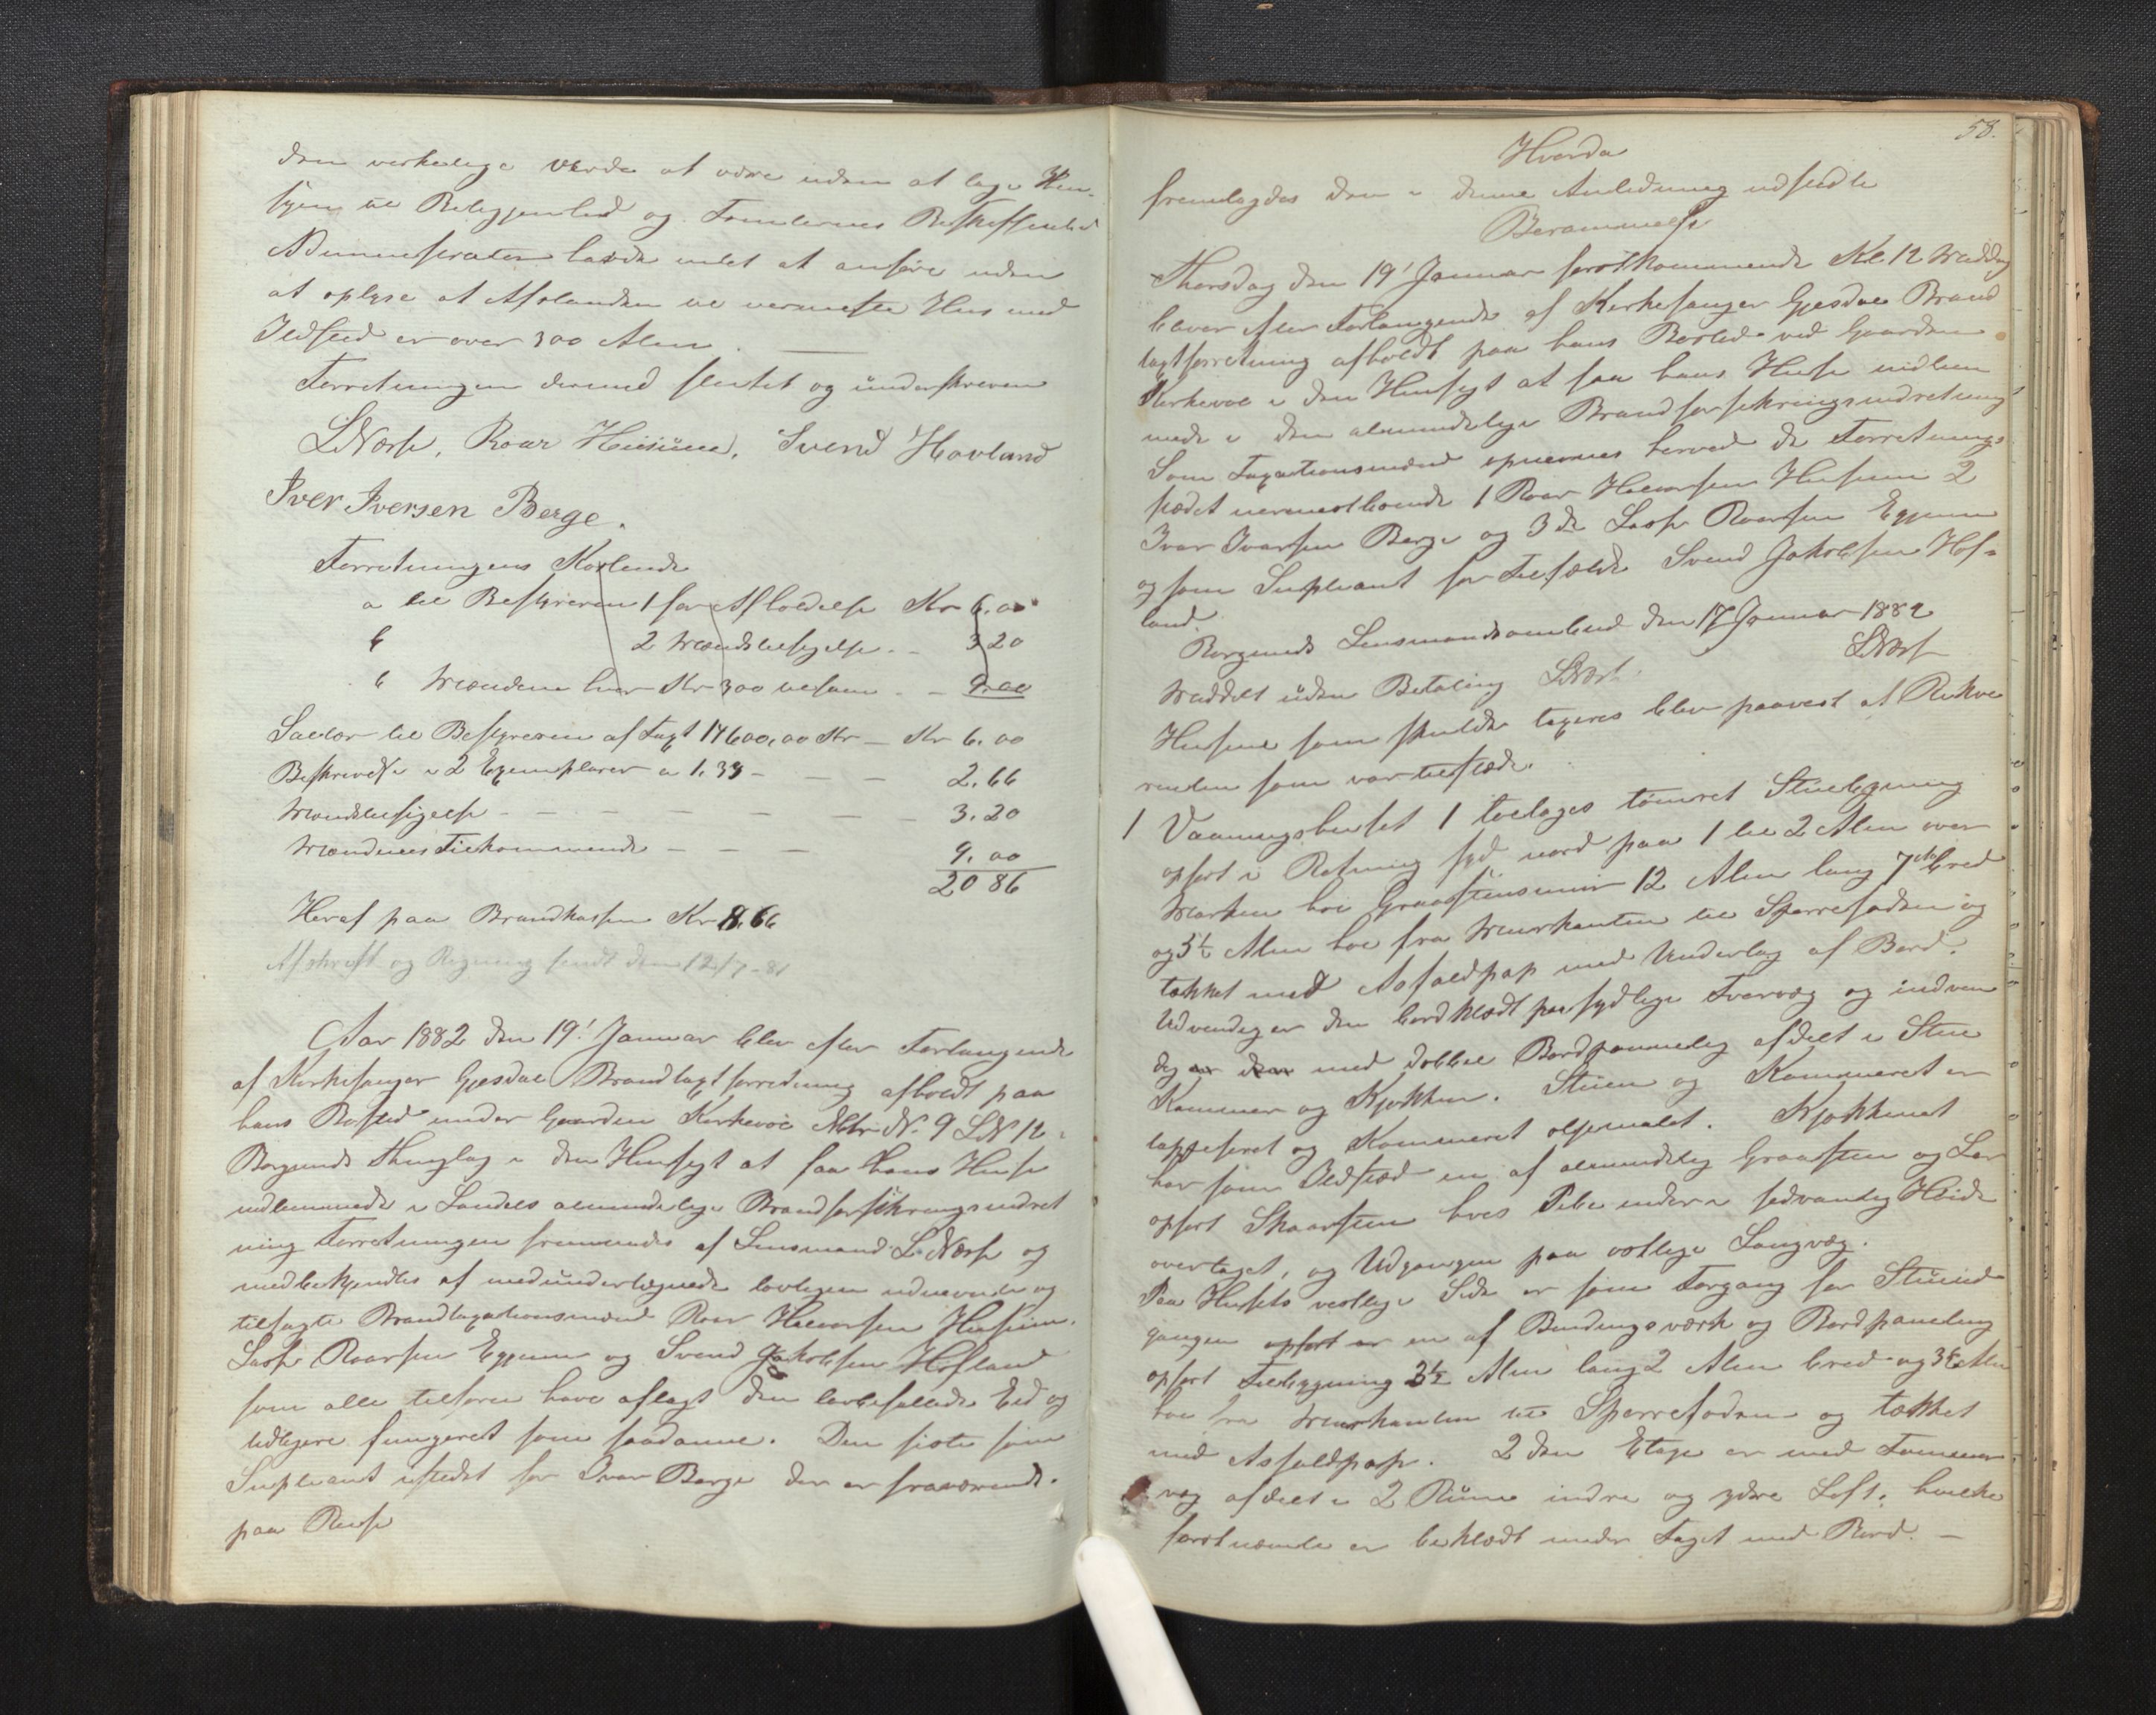 den verkelige Verde at være uden at tage Hen-
syn til Beliggenhed og Tomternes Beskaffenhed
Administrator havde intet at anføre uden
at oplyse at Afstanden til nærmeste Hus med
Ildsted er over 300 Alen.
Forretningen dermed sluttet og underskreven
LNæss, Roar Husum, Svend Hovland
Iver Iversen Berge.
Forretningens Kostende
a til Bestyreren 1 for Afholdelse Kr 6.00
b 2 Mændstilsigelse - 3 20
c Mændene hver Kr 3 00 tilsam - 9.00
Salær til Bestyreren af Taxt 14600,00 Kr - Kr 6.00
Beskrivelse i 2 Exemplarer a 1.33 - 2.66
Mændstilsigelse - 3.20
Mændenes Tilkommende - 9.00
20 86
Heraf paa Brandkassen Kr 8.66
Afskrift og Regning sendt den 12/7-81
Aar 1882 den 19' Januar blev efter Forlangende
af Kirkesanger Gjesdal Brandtaxtforretning afholdt paa
hans Bosted under Gaarden Kirkevol Mtr N. 9 LN 12
Borgunds Thinglag i den Hensigt at faa hans Huse
indlemmede i Landets almindelige Brandforsikringsindret
ning Forretningen fremmedes af Lensmand L. Næss og
medbetjentes af medundertegnede lovligen udnævnte og
tilsagte Brandtaxationsmænd Roar Halvorsen Husum.
Lasse Roarsen Eggum og Svend Jakobsen Hofland
som alle tilforn have aflagt den lovbefallede Eed og
tidligere fungeret som saadanne. Den siste som
Supleant istedet for Ivar Berge der er fraværende.
paa Reise
58.
Hvorda
fremlagdes den i denne Anledning udstedte
Berammelse
Thorsdag den 19' Januar førstkommende Kl 12 Middag
bliver efter Forlangende af Kirkesanger Gjesdal Brand
taxtforretning afholdt paa hans Bosted ved Gaarden
Kirkevol i den Hensigt at faa hans Huse indlem
mede i den almindelige Brandforsikringsindretning
Som Taxationsmænd opnævnes herved de Forretnings
stedet nærmestboende 1 Roar Halvorsen Husum 2
Ivar Ivarsen Berge og 3 de Lasse Roarsen Eggum
og som Supleant for Tilfælde Svend Jakobsen Hof-
land.
Borgunds Lensmandsombud den 17 Januar 1882
LNæss
Meddelt uden Betaling LNæss
Husene som skulde taxeres blev paavist af Rekvi
renten som var tilstede.
1 Vaaningshuset 1 toetages tømret Stuebygning
opført i Retning syd nord paa 1 til 2 Alen over
Marken høi Graastensmur 12 Alen lang 7 do bred
og 5½ Alen høi fra Murkanten til Sperrefoden og
tækket med Asfaldpap med Underlag af Bord.
Udvendig er den bordklædt paa sydlige Tvervæg og indven
dig er den med dobbel Bordpanneling afdelt i Stue
Kammer og Kjøkken. Stuen og Kammeret er
tappeseret og Kammeret oljemalet. Kjøkkenet
har som Ildsted en af almindelig Graasten og Ler
opført Skaarsten hvis Pibe under i sedvanlig Høide
overtaget, og Udgangen paa østlige Langvæg.
Paa Husets vestlige Side er som Forgang for Stueind
gangen opført er en af Bindingsværk og Bordpaneling
opført Tilbygning 3½ Alen lang 2 Alen bred og 3½ Alen
høi fra Murkanten til Sperrefoden og tækket
med Asfaldpap. 2 den Etage er med Tømmer
væg afdelt i 2 Rum indre og ydre Loft, hvilke
førstnævnte er beklædt under Taget med Bord. -